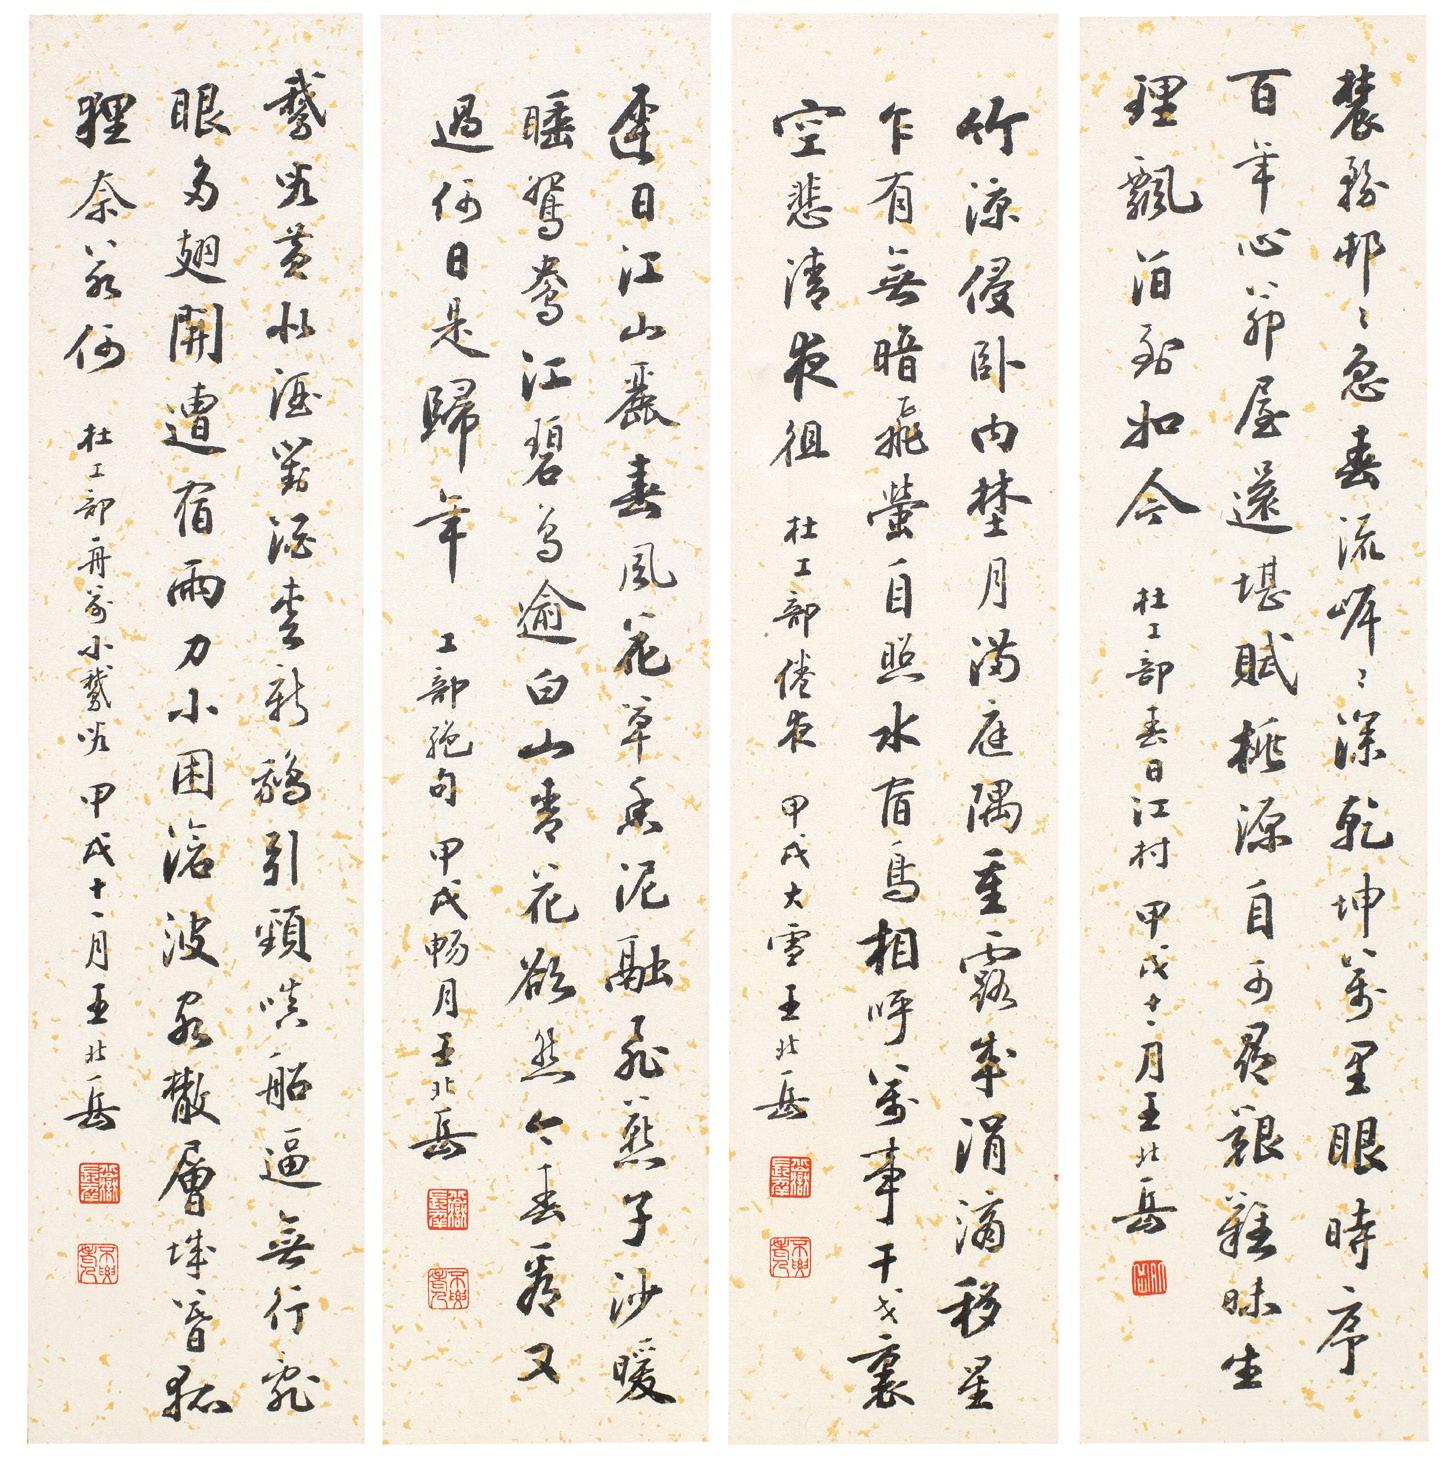 農務邨〻急春流岸〻深乾坤萬里眼時序
百年心茆屋還堪賦桃源自可尋艱難昧生
理飄泊到如今 杜工部春日江村 甲戌十一月王北岳
竹涼侵臥内埜月滿庭隅重露成涓滴稀星
乍有無暗飛螢自照水宿鳥相呼萬事干戈裏
空悲清夜徂 杜工部倦夜 甲戌大雪王北岳
遲日江山麗春風花草香泥融飛燕子沙暖
睡鴛鴦江碧鳥逾白山青花欲然今春看又
過何日是歸年 工部絕句 甲戌暢月王北岳
鵝兒黃似酒對酒愛新鵝引頸嗔船逼無行亂
眼多翅開遭宿雨力小困滄波客散層城暮狐
狸奈若何 杜工部舟前小鵝兒 甲戌十一月王北岳